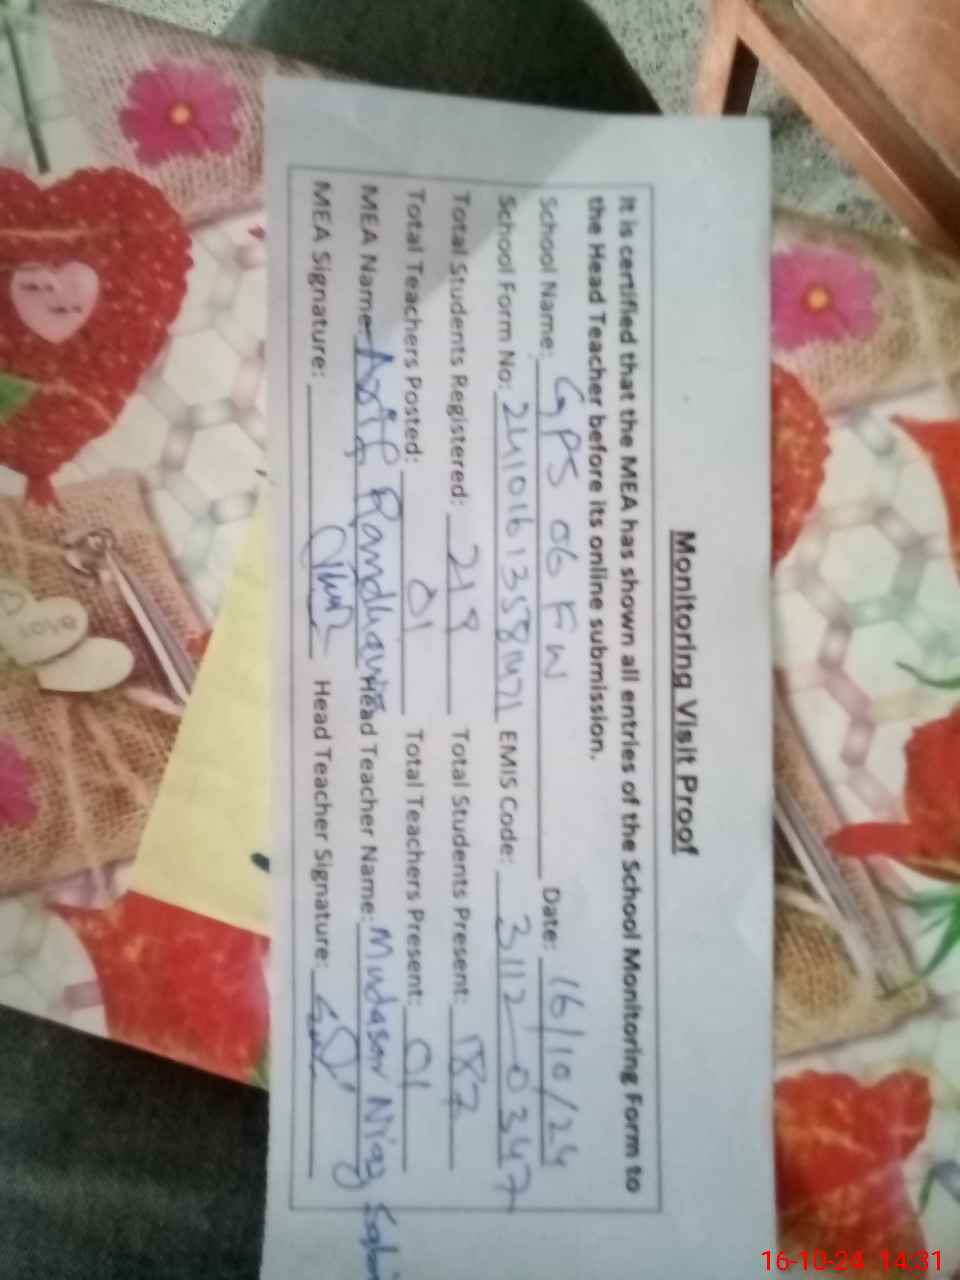 Monitoring Visit Proof
It is certified that the MEA has shown all entries of the School Monitoring Form to
the Head Teacher before its online submission.
School Name: GPS 06 FW Date: 16/10/24
School Form No: EMIS Code: 3112-0347
Total Students Registered: 219 Total Students Present: 187
Total Teachers Posted: 01 Total Teachers Present: 01
MEA Name: Asif Randhawa Head Teacher Name: Mudasar Niaz
MEA Signature: Head Teacher Signature:
LOVE
16-10-24 14:31